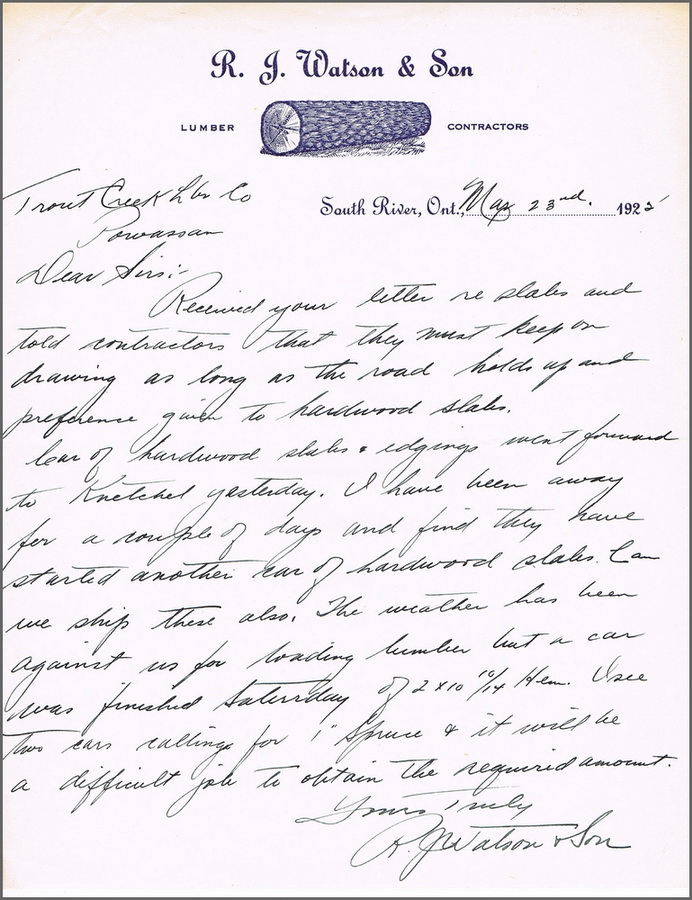 R. J. Watson & Son
LUMBER CONTRACTORS
Trout Creek Lbr Co
South River, Ont., Mar 23rd. 1925
Powassan
Dear Sirs:-
Received your letter re slabs and
told contractors that they must keep on
drawing as long as the road holds up and
preference given to hardwood slabs.
Car of hardwood slabs & edgings went forward
to Knetchel yesterday. I have been away
for a couple of days and find they have
started another car of hardwood slabs. Can
we ship these also. The weather has been
against us for loading lumber but a car
was finished Saturday of 2 x 10 10/14 Hem. I see
two cars calling for 1" Spruce & it will be
a difficult job to obtain the required amount.
Yours Truly
R. J. Watson & Son